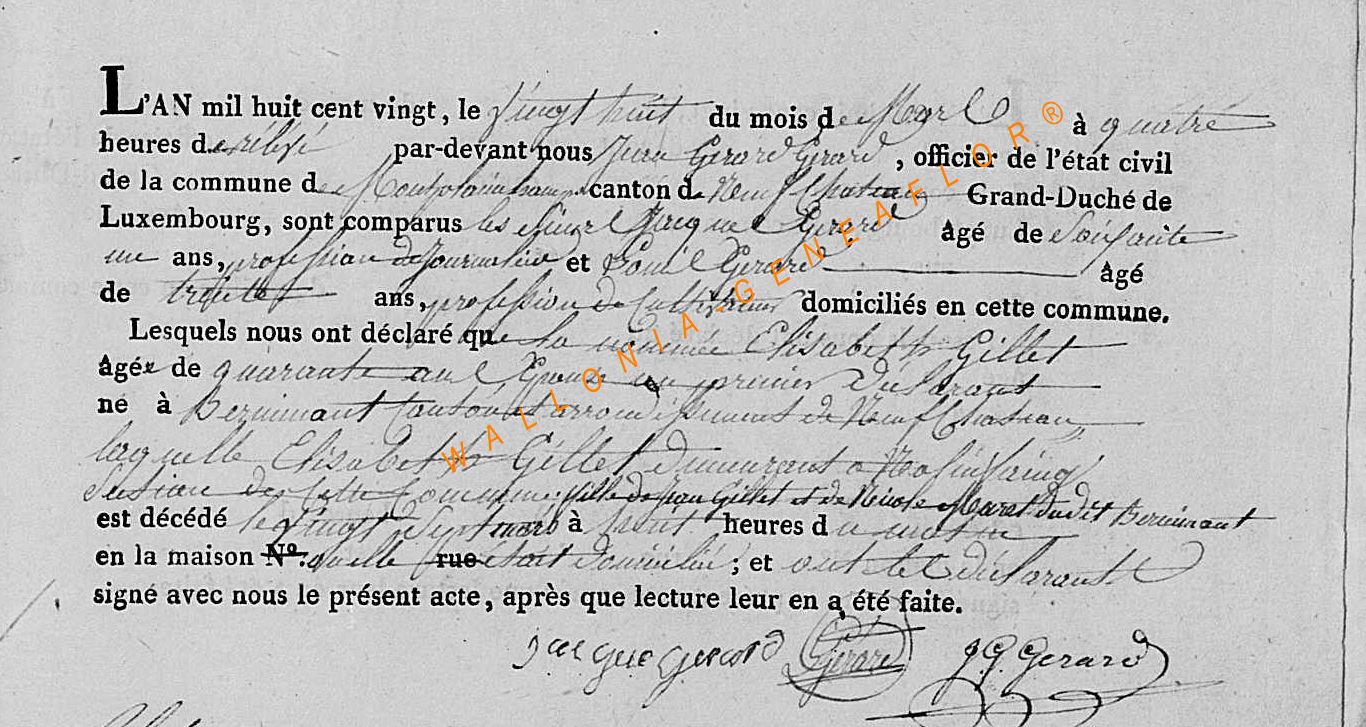 L'AN mil huit cent vingt, le vingt huit du mois de Mars à quatre
heures de relevé par-devant nous Jean Gerard Gerard, officier de l'état civil
de la commune de canton de Neufchateau Grand-Duché de
Luxembourg, sont comparus les sieurs Jacques Gerard âgé de soisante
une ans, profession de Journalier et Gerard âgé
de trente ans, profession de Cultivateur domiciliés en cette commune.
Lesquels nous ont déclaré que la nommée Elisabeth Gillet
âgée de quarante ans Epouse au premier Déclarant
né à Bernimont Canton et arrondissement de Neufchateau
laquelle Elisabeth Gillet Demeurant a
Section de Cette Commune fille de Jean Gillet et de Nicole Maret dudit Bernimont
est décédé le vingt Sept mars à huit heures du matin
en la maison N°. quelle rue etoit domicilié ; et ont les déclarants
signé avec nous le présent acte, après que lecture leur en a été faite.
Jacque Gerard Gerard J G Gerard
WALLONIA-GENEAFLOR®